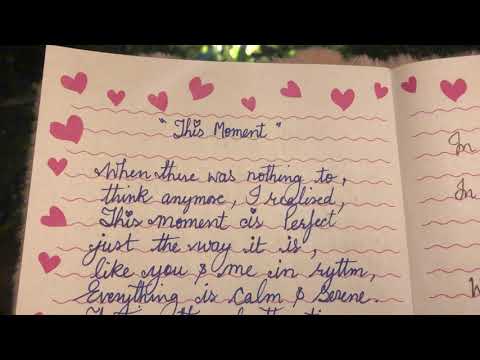 "This Moment"
When there was nothing to,
think anymore, I realised,
This moment is Perfect
just the way it is,
like you & me in rytm,
Everything is Calm & Serene.
In
In